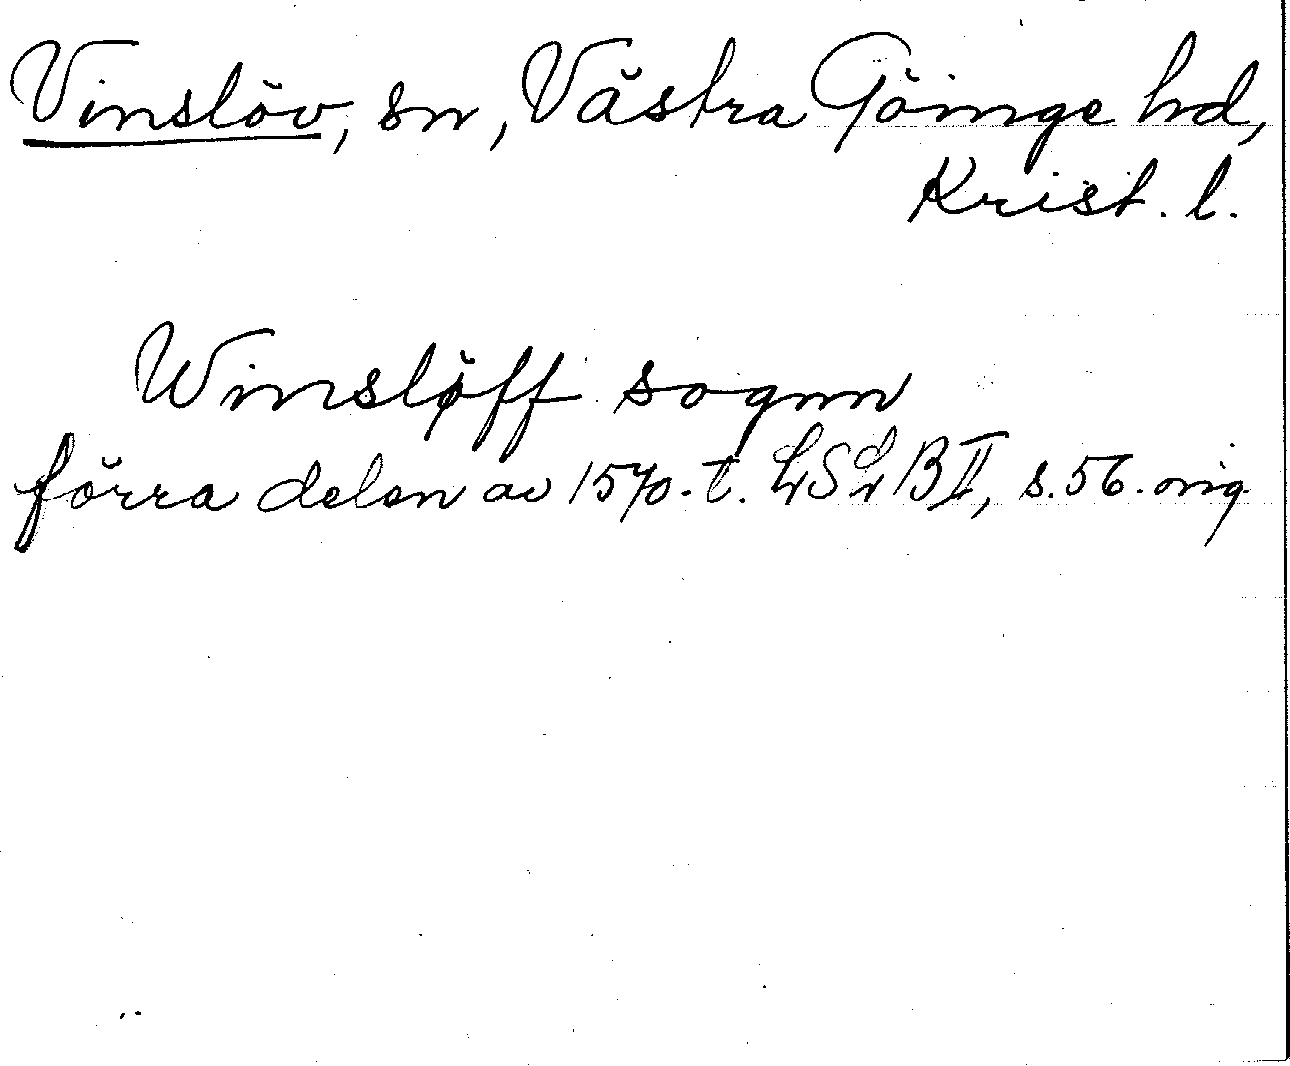 Vinslöv, sn, Västra Göinge hd,
Krist. l.
Winsløff sognn
förra delen av 1570-t. LSLB II, s. 56. orig.